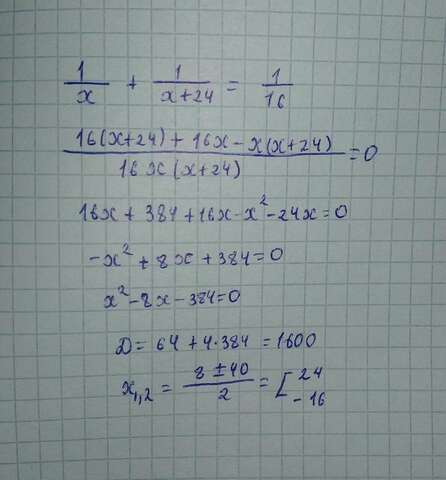 1/x + 1/(x+24) = 1/16
(16(x+24) + 16x - x(x+24))/(16x(x+24)) = 0
16x + 384 + 16x - x² - 24x = 0
-x² + 8x + 384 = 0
x² - 8x - 384 = 0
D = 64 + 4·384 = 1600
x₁,₂ = (8 ± 40)/2 = [ 24
- 16